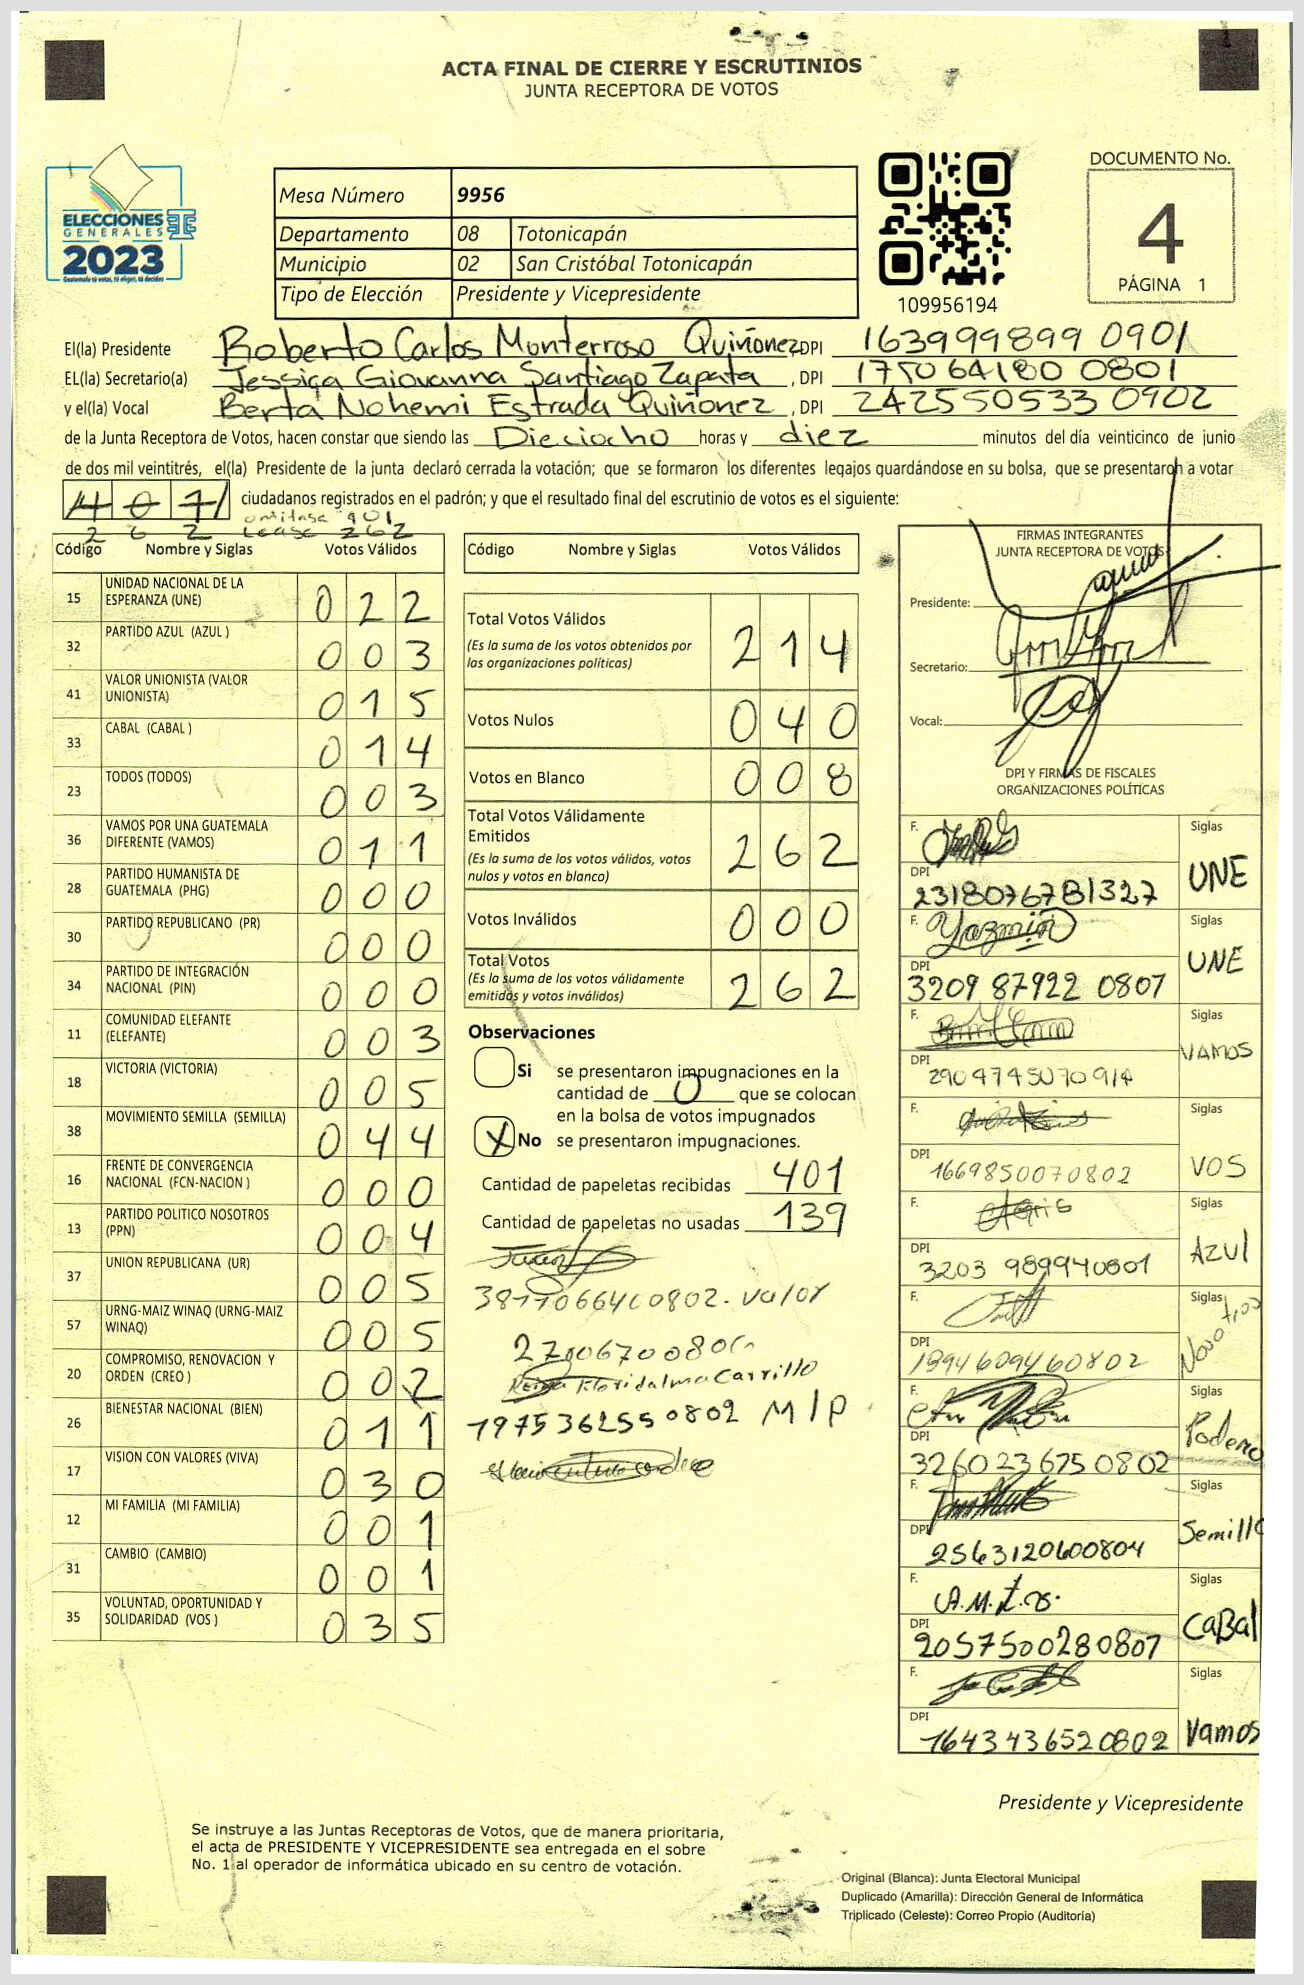 ACTA FINAL DE CIERRE Y ESCRUTINIOS
JUNTA RECEPTORA DE VOTOS
ELECCIONES
GENERALES
2023
Guatemala tú votas, tú eliges, tú decides
Mesa Número 9956
Departamento 08 Totonicapán
Municipio 02 San Cristóbal Totonicapán
Tipo de Elección Presidente y Vicepresidente
109956194
DOCUMENTO No.
4
PÁGINA 1
El(la) Presidente Roberto Carlos Monterroso Quiñonez DPI 163999899 0901
EL(la) Secretario(a) Jessica Giovanna Santiago Zapata , DPI 175064180 0801
y el(la) Vocal Berta Nohemi Estrada Quiñonez , DPI 242550533 0902
de la Junta Receptora de Votos, hacen constar que siendo las Dieciocho horas y diez minutos del día veinticinco de junio
de dos mil veintitrés, el(la) Presidente de la junta declaró cerrada la votación; que se formaron los diferentes legajos guardándose en su bolsa, que se presentaron a votar
401 ciudadanos registrados en el padrón; y que el resultado final del escrutinio de votos es el siguiente:
omitase 401
2 6 2 Lease 262
Código Nombre y Siglas Votos Válidos
15 UNIDAD NACIONAL DE LA ESPERANZA (UNE) 022
32 PARTIDO AZUL (AZUL ) 003
41 VALOR UNIONISTA (VALOR UNIONISTA) 015
33 CABAL (CABAL ) 014
23 TODOS (TODOS) 003
36 VAMOS POR UNA GUATEMALA DIFERENTE (VAMOS) 011
28 PARTIDO HUMANISTA DE GUATEMALA (PHG) 000
30 PARTIDO REPUBLICANO (PR) 000
34 PARTIDO DE INTEGRACIÓN NACIONAL (PIN) 000
11 COMUNIDAD ELEFANTE (ELEFANTE) 003
18 VICTORIA (VICTORIA) 005
38 MOVIMIENTO SEMILLA (SEMILLA) 044
16 FRENTE DE CONVERGENCIA NACIONAL (FCN-NACION ) 000
13 PARTIDO POLITICO NOSOTROS (PPN) 004
37 UNION REPUBLICANA (UR) 005
57 URNG-MAIZ WINAQ (URNG-MAIZ WINAQ) 005
20 COMPROMISO, RENOVACION Y ORDEN (CREO ) 002
26 BIENESTAR NACIONAL (BIEN) 011
17 VISION CON VALORES (VIVA) 030
12 MI FAMILIA (MI FAMILIA) 001
31 CAMBIO (CAMBIO) 001
35 VOLUNTAD, OPORTUNIDAD Y SOLIDARIDAD (VOS ) 035
Código Nombre y Siglas Votos Válidos
Total Votos Válidos 214
(Es la suma de los votos obtenidos por
las organizaciones políticas)
Votos Nulos 040
Votos en Blanco 008
Total Votos Válidamente
Emitidos 262
(Es la suma de los votos válidos, votos
nulos y votos en blanco)
Votos Inválidos 000
Total Votos 262
(Es la suma de los votos válidamente
emitidos y votos inválidos)
Observaciones
Si se presentaron impugnaciones en la
cantidad de 0 que se colocan
en la bolsa de votos impugnados
X No se presentaron impugnaciones.
Cantidad de papeletas recibidas 401
Cantidad de papeletas no usadas 139
Valor
Floridalma Carrillo
1975362550802 MLP
FIRMAS INTEGRANTES
JUNTA RECEPTORA DE VOTOS
Presidente:
Secretario:
Vocal:
DPI Y FIRMAS DE FISCALES
ORGANIZACIONES POLÍTICAS
F. Siglas
DPI 2318076781327 UNE
F. Yazmin Siglas
DPI 3209 87922 0807 UNE
F. Siglas
DPI 2904745070914 VAMOS
F. Siglas
DPI 1669850070802 VOS
F. Siglas
DPI 3203 989940801 Azul
F. Siglas
DPI 1994609460802 Nosotros
F.
DPI 3260236750802 Podemo
F. Siglas
DPI 2563120600804 Semilla
F. A.M. Siglas
DPI 2057500280807 CaBal
F. Siglas
DPI 1643436520802 Vamos
Presidente y Vicepresidente
Se instruye a las Juntas Receptoras de Votos, que de manera prioritaria,
el acta de PRESIDENTE Y VICEPRESIDENTE sea entregada en el sobre
No. 1 al operador de informática ubicado en su centro de votación.
Original (Blanca): Junta Electoral Municipal
Duplicado (Amarilla): Dirección General de Informática
Triplicado (Celeste): Correo Propio (Auditoría)